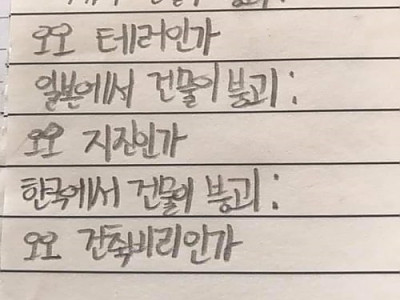 오오 테러인가
일본에서 건물이 붕괴:
오오 지진인가
한국에서 건물이 붕괴:
오오 건축비리인가